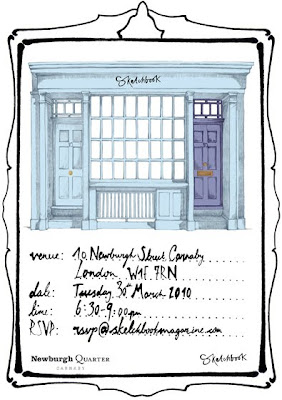 Sketchbook
venue: 10 Newburgh Street, Carnaby
London W1F 7RN
date: Tuesday 30th March 2010
time: 6:30-9:00pm
RSVP: rsvp@sketchbookmagazine.com
Newburgh Quarter Sketchbook
CARNABY